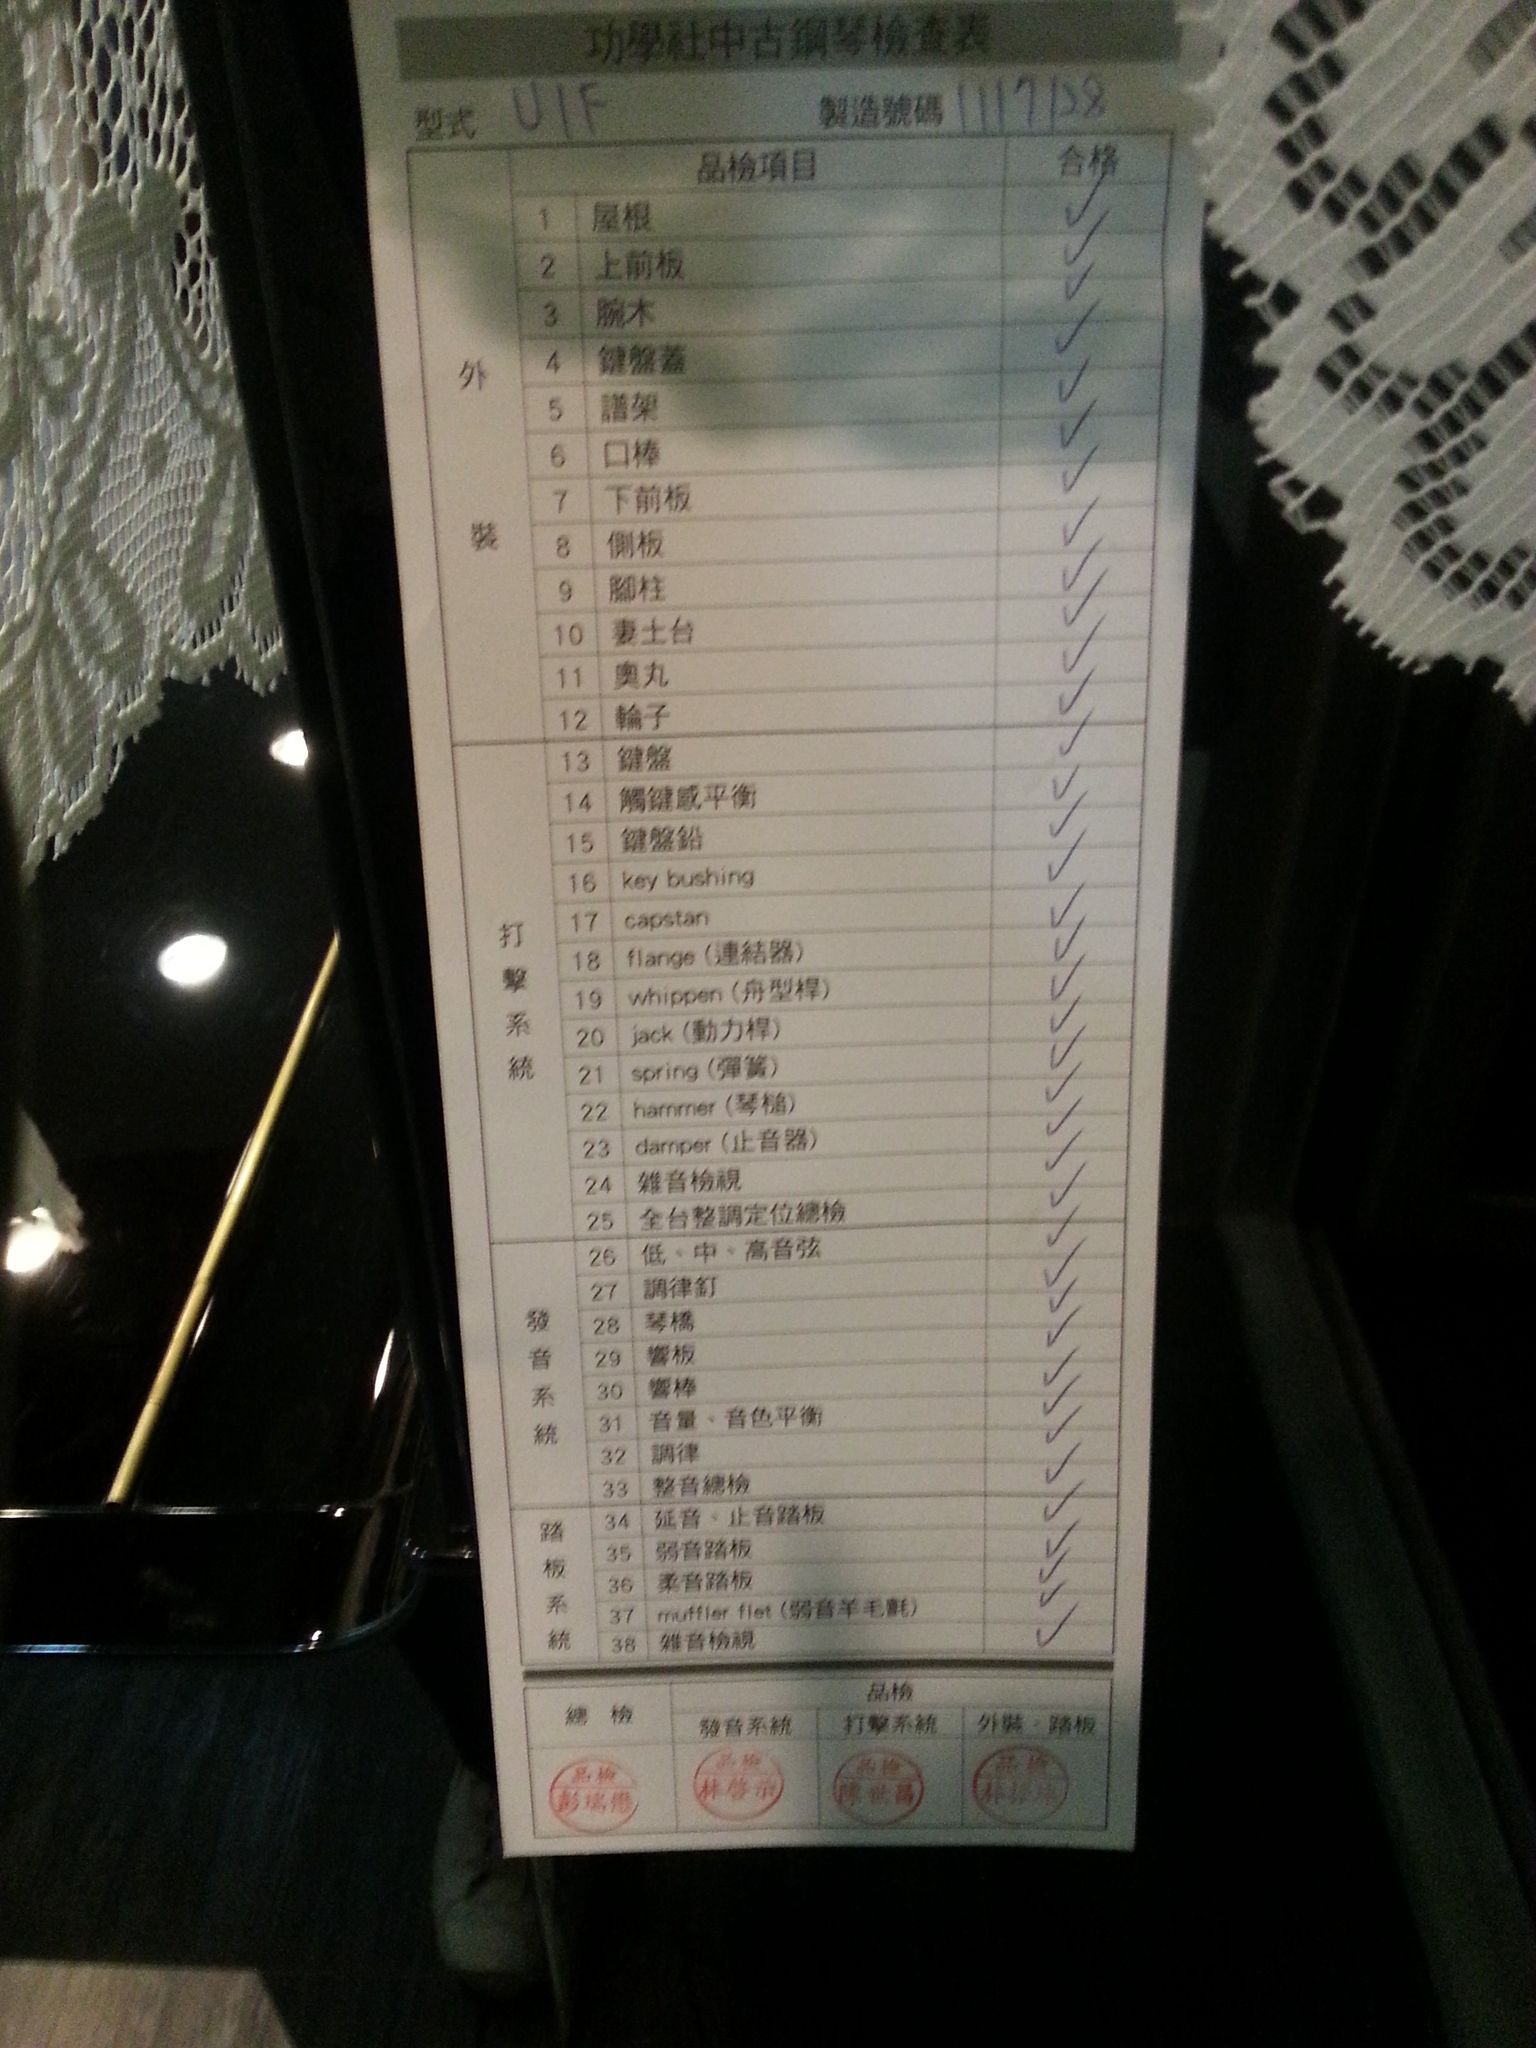 功學社中古鋼琴檢查表
型式 U1F 製造號碼 1117128
品檢項目 合格
外裝
1 屋根 ✓
2 上前板 ✓
3 腕木 ✓
4 鍵盤蓋 ✓
5 譜架 ✓
6 口棒 ✓
7 下前板 ✓
8 側板 ✓
9 腳柱 ✓
10 妻土台 ✓
11 奧丸 ✓
12 輪子 ✓
打擊系統
13 鍵盤 ✓
14 觸鍵感平衡 ✓
15 鍵盤鉛 ✓
16 key bushing ✓
17 capstan ✓
18 flange (連結器) ✓
19 whippen (舟型桿) ✓
20 jack (動力桿) ✓
21 spring (彈簧) ✓
22 hammer (琴槌) ✓
23 damper (止音器) ✓
24 雜音檢視 ✓
25 全台整調定位總檢 ✓
發音系統
26 低、中、高音弦 ✓
27 調律釘 ✓
28 琴橋 ✓
29 響板 ✓
30 響棒 ✓
31 音量、音色平衡 ✓
32 調律 ✓
33 整音總檢 ✓
踏板系統
34 延音、止音踏板 ✓
35 弱音踏板 ✓
36 柔音踏板 ✓
37 muffler flet (弱音羊毛氈) ✓
38 雜音檢視 ✓
總檢 品檢
發音系統 打擊系統 外裝、踏板
品檢 品檢 品檢 品檢
陳世昌